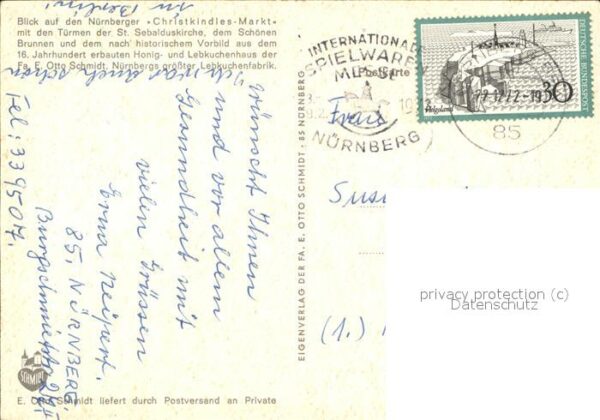 Blick auf den Nürnberger »Christkindles-Markt«
mit den Türmen der St. Sebalduskirche, dem Schönen
Brunnen und dem nach historischem Vorbild aus dem
16. Jahrhundert erbauten Honig- und Lebkuchenhaus der
Fa. E. Otto Schmidt, Nürnbergs größter Lebkuchenfabrik.
in Berlin!
Ich war auch schon
wünscht Ihnen
und vor allem
Gesundheit mit
vielen Grüssen
Erna Neipert.
85, NÜRNBERG,
Burgschmietstr.
Tel: 339507.
SCHMIDT
E. Otto Schmidt liefert durch Postversand an Private
EIGENVERLAG DER FA. E. OTTO SCHMIDT · 85 NÜRNBERG
INTERNATIONALE
SPIELWAREN
MESSE
NÜRNBERG
Postkarte
DEUTSCHE BUNDESPOST
Helgoland
30
85
Frau
(1.)
privacy protection (c)
Datenschutz